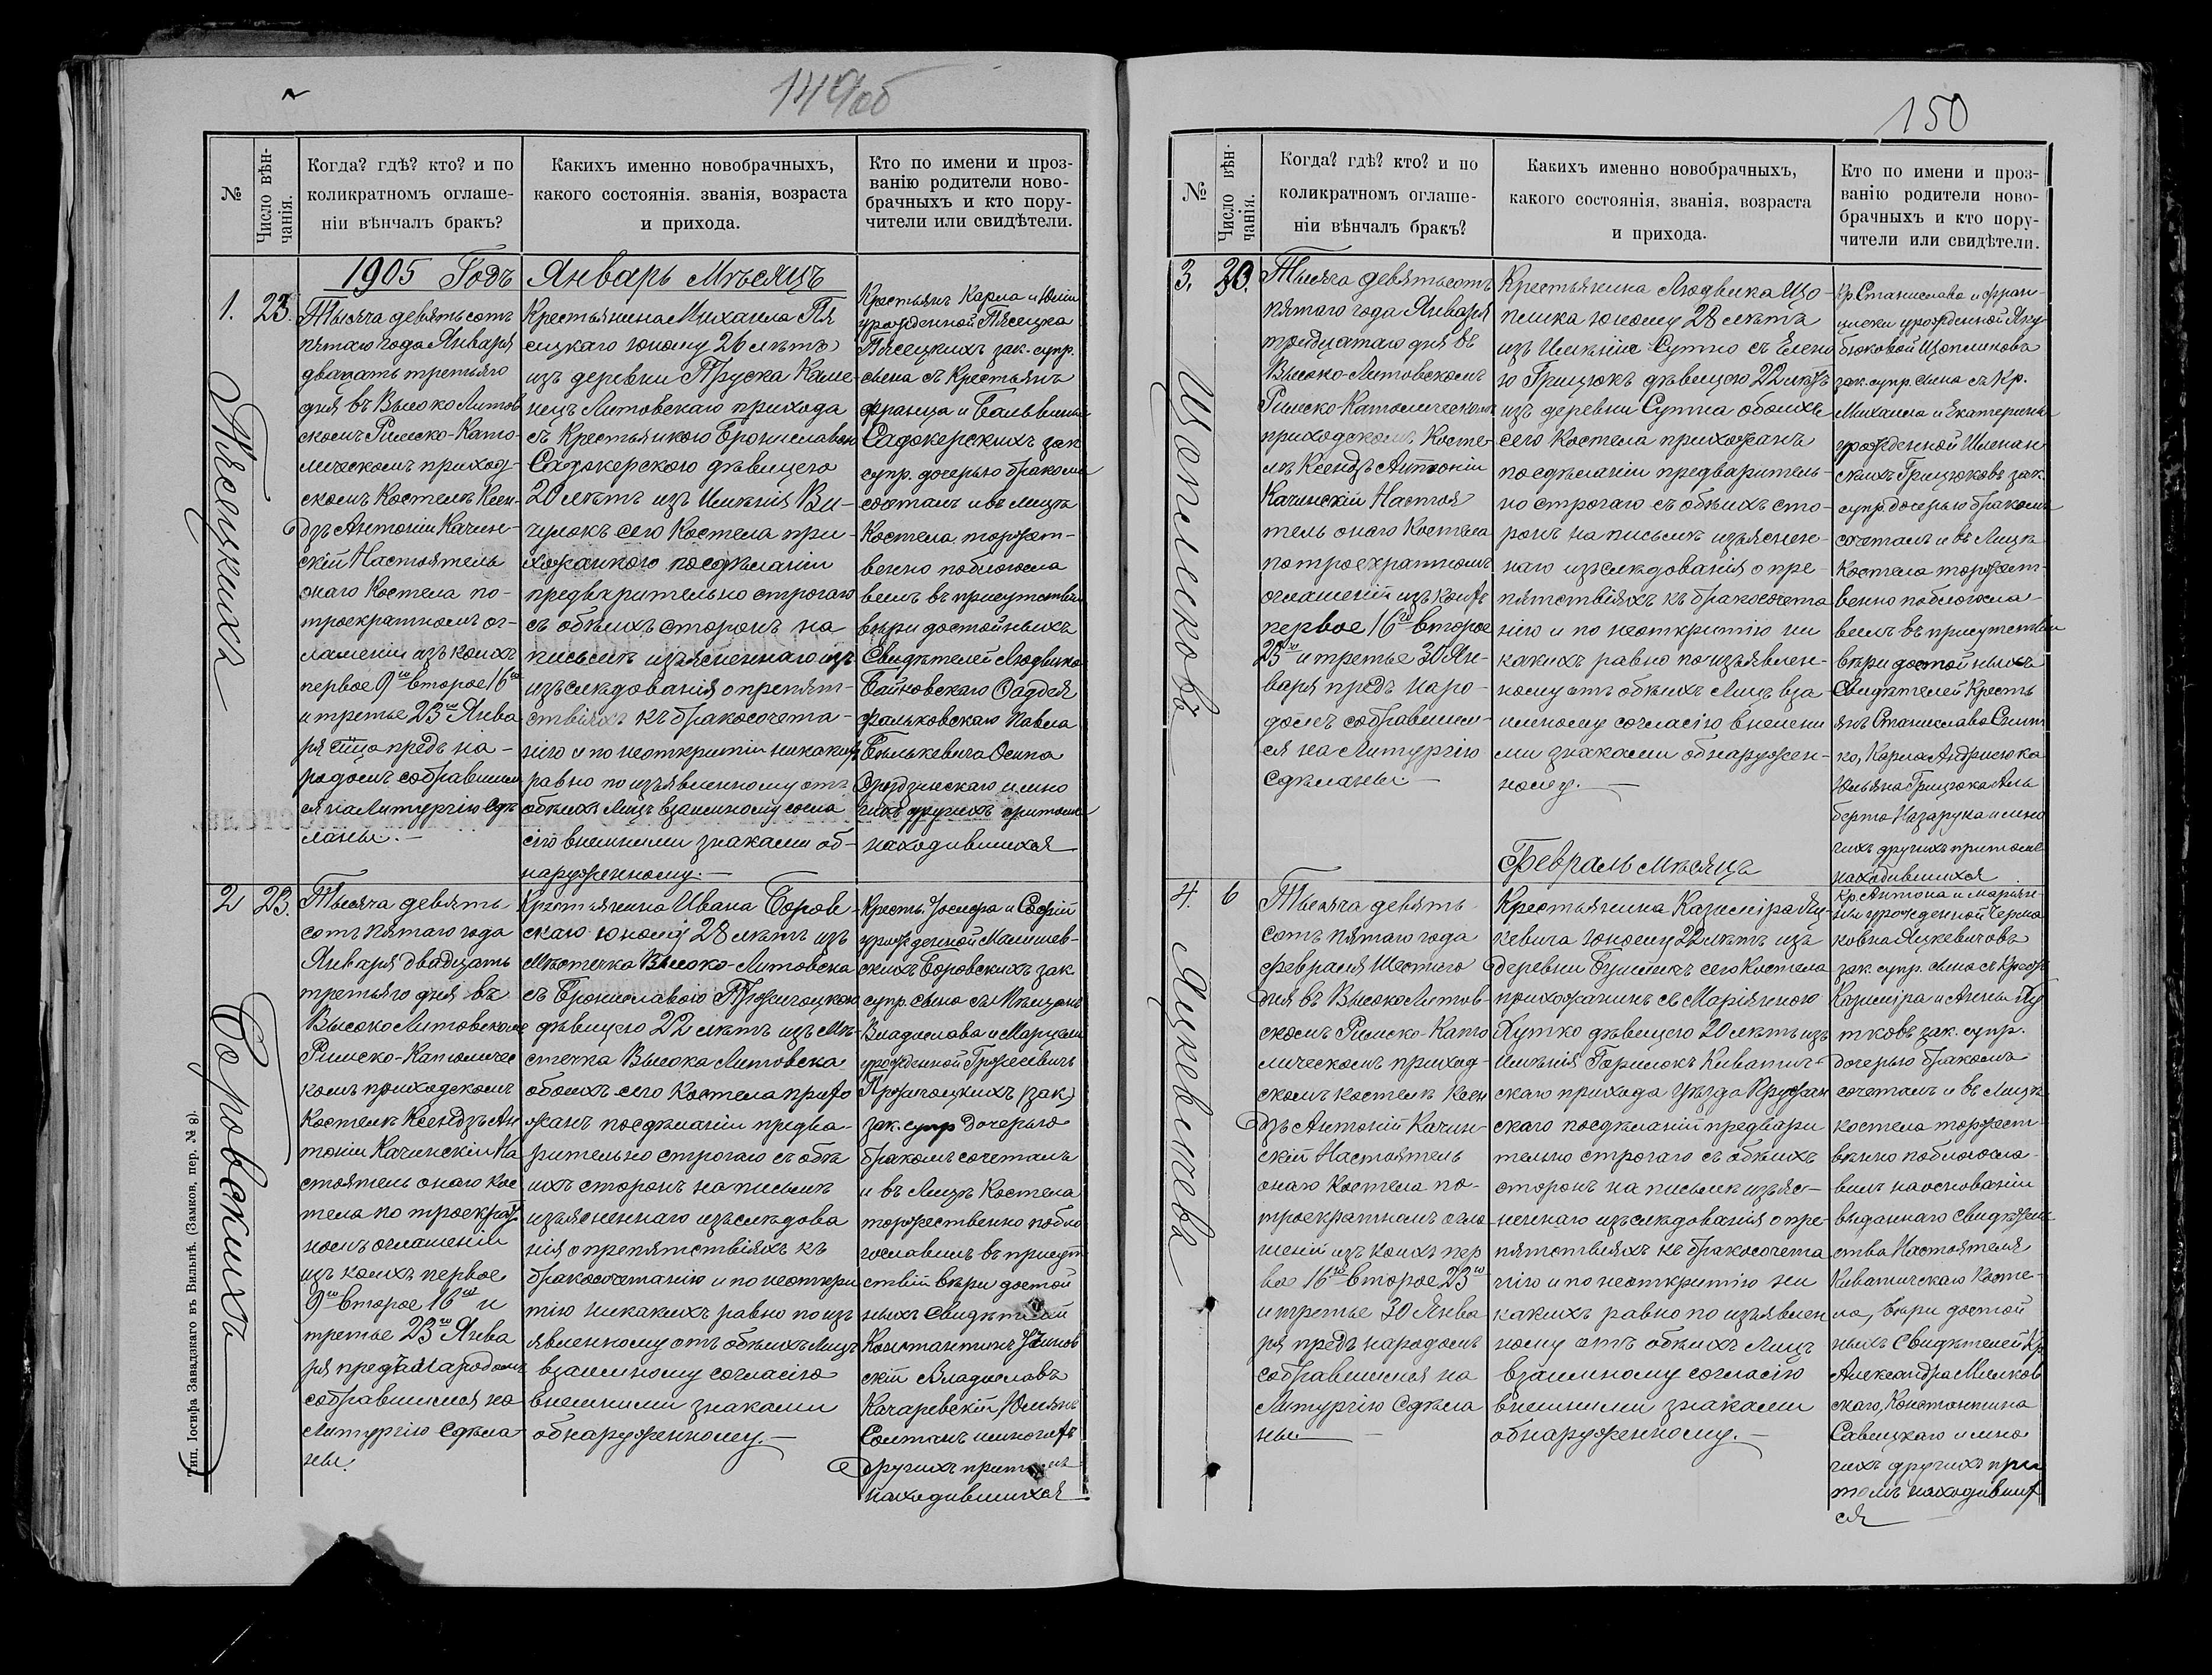 149об
№
Число вѣн-
чанія.
Когда? гдѣ? кто? и по
коликратномъ оглаше-
ніи вѣнчалъ бракъ?
Какихъ именно новобрачныхъ,
какого состоянія. званія, возраста
и прихода.
Кто по имени и проз-
ванію родители ново-
брачныхъ и кто пору-
чители или свидѣтели.
1905 Годъ Январь Мѣсяцъ
1.
23.
Пясецкихъ
Тысяча девятьсотъ
пятаго года Января
двацать третьяго
дня въ Высоко Литов
скомъ Римско-Като-
лическомъ приход-
скомъ Костелѣ Ксен-
дзъ Антоній Качин-
скій Настоятель
онаго Костела по-
троекратномъ ог-
лашеніи изъ коихъ
первое 9го второе 16го
и третье 23го Янва
ря предъ на-
родомъ собравшим
ся на Литургію сдѣ
ланы.—
Крестьянина Михаила Пя
сецкаго юному 26 лѣтъ
изъ деревни Пруска Каме
нецъ Литовскаго прихода
съ Крестьянкою Брониславою
Садокерскою дѣвицею
20 лѣтъ изъ Имѣнія Ви-
чулокъ сего Костела при-
хожанкою посдѣланіи
предварительно строгаго
съ обѣихъ сторонъ на
письмѣ изъясненнаго изъ
изъслѣдованія о препят-
ствіяхъ къ бракосочета-
нію и по неоткрытіи никакихъ
равно по изъявленному отъ
обѣихъ Лицъ взаимному согла
сію внешними знаками об-
наруженному.—
Крестьянъ Карла и Юліи
урожденной Пясецка
Пясецкихъ зак. супр.
сына съ Крестьянъ
Франца и Бальвины
Садокерскихъ зак
супр. дочерью бракомъ
сочталъ и въ лицѣ
Костела торжест-
венно поблогосла
вилъ въ присутствіи
вѣри достойныхъ
Свидѣтелей Людвика
Байковскаго Фаддея
Фальковскаго Павла
Былькевича Осипа
Дроздзинскаго и мно
гихъ другихъ притомъ
находившихся
2
23.
Боровскихъ
Тысяча девять
сотъ пятаго года
Января двадцать
третьяго дня въ
Высоко Литовскомъ
Римско-Католичес
комъ приходскомъ
Костелѣ Ксендзъ Ан
тоній Качинскій На
стоятель онаго Кос
тела по троекрат
номъ оглашеніи
изъ коихъ первое
9го второе 16го и
третье 23го Янва
ря предъ народомъ
собравшимся на
Литургію сдѣла
ны.
Крестьянина Ивана Боров-
скаго юному 28 лѣтъ изъ
Мѣстечка Высоко-Литовска
съ Брониславою Прожигоцкою
дѣвицею 22 лѣтъ изъ Мѣ-
стечка Высока Литовска
обоихъ сего Костела прихо
жанъ посдѣланіи предва-
рительно строгаго съ обѣ
ихъ сторонъ на письмѣ
изъясненнаго изъслѣдова
нія о препятствіяхъ къ
бракосочетанію и по неоткры
тію никакихъ равно по изъ
явленному отъ обѣихъ Лицъ
взаимному согласію
внешними знаками
обнаруженному.—
Кресть. Іосифа и Софіи
урожденной Малишев-
скихъ Боровскихъ зак
супр. сына съ Мѣщанъ
Владислава и Марцели
урожденной Гружевичъ
Прожигоцкихъ (зак)
зак. супр дочерью
бракомъ сочеталъ
и въ Лицѣ Костела
торжественно побло
гославилъ въ присут
ствіи вѣри достой
ныхъ свидѣтелей
Константинъ
скій Владиславъ
Качаревскій, Юліянъ
Солтанъ и многихъ
другихъ притомъ
находившихся
Тип. Іосифа Завадзкаго въ Вильнѣ. (Замков. пер. № 8).
150
№
Число вѣн-
чанія.
Когда? гдѣ? кто? и по
коликратномъ оглаше-
ніи вѣнчалъ бракъ?
Какихъ именно новобрачныхъ,
какого состоянія, званія, возраста
и прихода.
Кто по имени и проз-
ванію родители ново-
брачныхъ и кто пору-
чители или свидѣтели.
3.
30.
Щопликовъ
Тысяча девятьсотъ
пятаго года Января
тридцатаго дня въ
Высоко-Литовскомъ
Римско-Католическомъ
приходскомъ Косте-
лѣ Ксендзъ Антоній
Качинскій Настоя
тель онаго Костела
потроехратномъ
оглашеній изъ коихъ
первое 16го второе
23го и третье 30 Ян-
варя предъ наро-
домъ собравшим-
ся на Литургію
Сдѣланы.—
Крестьянина Людвика Що-
плика юному 28 лѣтъ
изъ Имѣнія Сутно съ Елено
ю Грицюкъ дѣвицею 22 лѣтъ
изъ деревни Сутна обоихъ
сего Костела прихожанъ
посдѣланіи предваритель-
но строгаго съ обѣихъ сто-
ронъ на письмѣ изъяснен-
наго изъслѣдованія о пре-
пятствіяхъ къ бракосочета
нію и по неоткрытію ни
какихъ равно по изъявлен-
ному отъ обѣихъ Лицъ вза-
имному согласію внешни
ми знаками обнаружен-
ному.—
Кр. Станислава и Фран-
цишки урожденной Яку
бюковой Щопликовъ
зак. супр. сына съ Кр.
Михаила и Екатерины
урожденной
скихъ Грицюковъ зак.
супр. дочерью бракомъ
сочеталъ и въ Лицѣ
Костела торжест-
венно поблогосла-
вилъ въ присутствіи
вѣри достойныхъ
Свидѣтелей Кресть
янъ Станислава
ко, Карла Андрисюка
Юльяна Грицюка Аль
берта Назарука и мно
гихъ другихъ притомъ
находившихся
Февраль мѣсяцъ
4.
6
Яцкевичева
Тысяча девять
сотъ пятаго года
февраля Шестого
дня въ Высоко Литов
скомъ Римско-Като
лическомъ приход-
скомъ костелѣ Ксен
дзъ Антоній Качин-
скій Настоятель
онаго Костела по-
троекратномъ огла
шеній изъ коихъ пер
вое 16го второе 23го
и третье 30 Янва
ря предъ народомъ
собравшимся на
Литургію Сдѣла
ны—
Крестьянина Казиміра Яц-
кевича юному 22 лѣтъ изъ
деревни сего Костела
прихожанинъ съ Маріянною
Путко дѣвицею 20 лѣтъ изъ
Имѣнія Киватич-
скаго прихода Уѣзда Пружан
скаго посдѣланій предвари
тельно строгаго съ обѣихъ
сторонъ на письмѣ изъяс-
неннаго изъслѣдованія о пре-
пятствіяхъ къ бракосочета
нію и по неоткрытію ни
какихъ равно по изъявлен
ному отъ обѣихъ Лицъ
взаимному согласію
внешними знаками
обнаруженному.—
Кр. Антона и Маріян-
ны урожденной Черна
ковна Яцкевичовъ
зак. супр. сына съ Крест
Казиміра и Анны Пу
тковъ зак. супр.
дочерью бракомъ
сочеталъ и въ Лицѣ
костела торжест-
венно поблогосла-
вилъ на основаніи
выданнаго Свидѣтель
ства Настоятеля
Киватичскаго Косте-
ла, вѣри достой
ныхъ Свидѣтелей Кр
Александра Милков
скаго, Константина
Савицкаго и мно
гихъ другихъ при
томъ находивших
ся